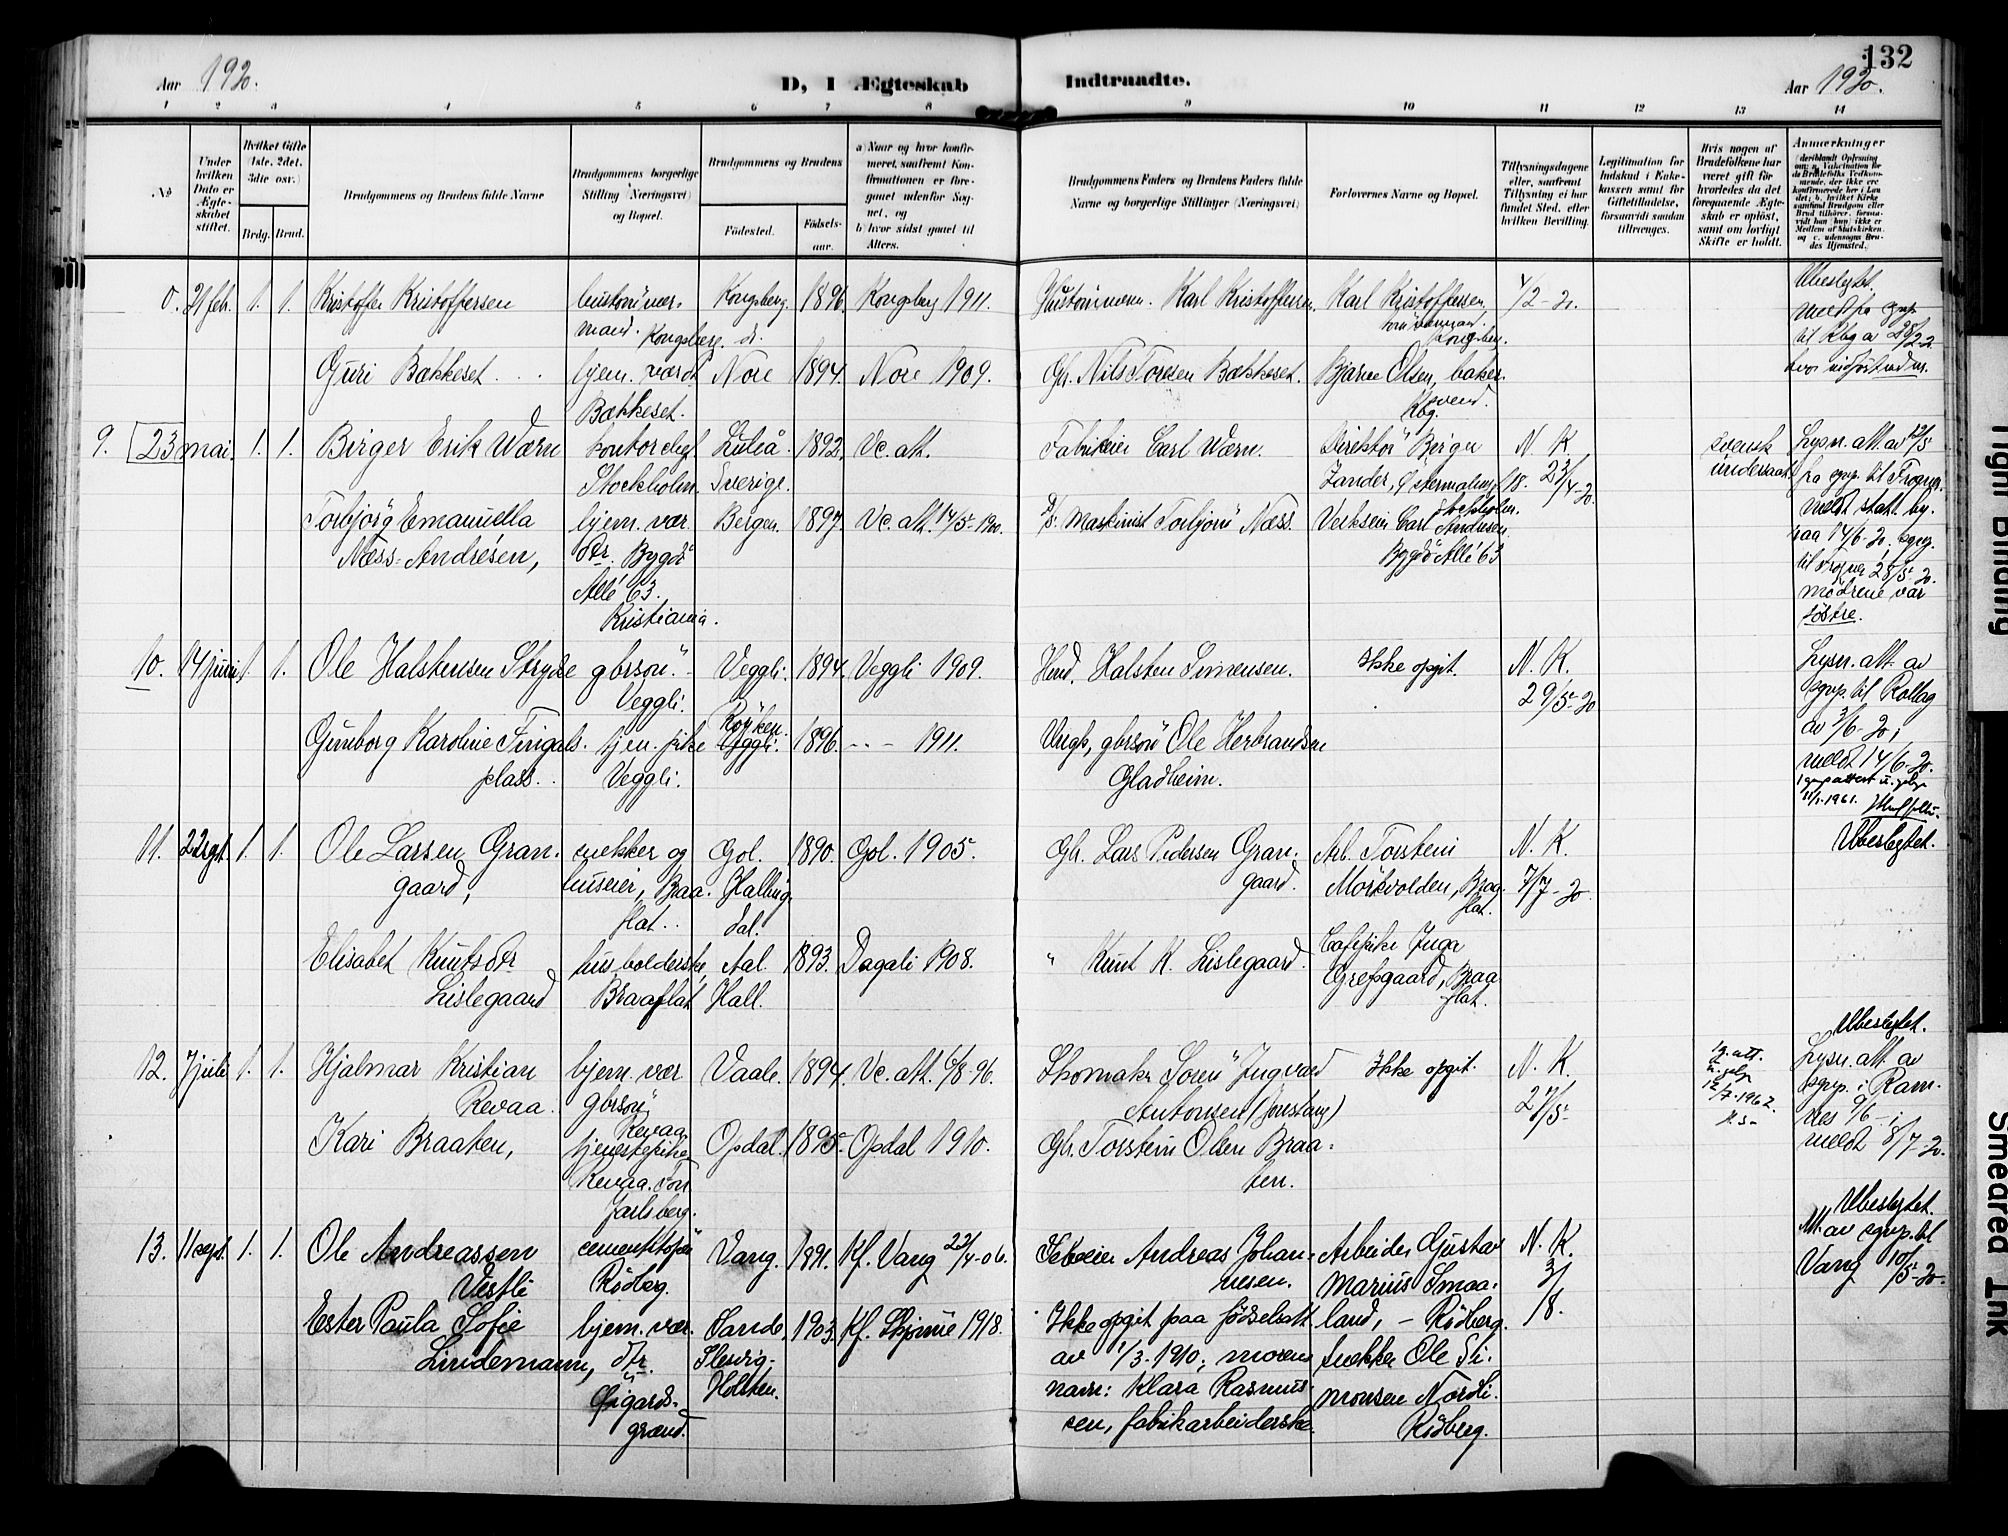 132
Aar 1920.
D, I Ægteskab
Indtraadte.
Aar 1920.
1 2 3 4 5 6 7 8 9 10 11 12 13 14
No
Under hvilken Dato er Ægteskabet stiftet.
Hvilket Gifte (1ste, 2det, 3die osv.)
Brdg. Brud.
Brudgommens og Brudens fulde Navne
Brudgommens borgerlige Stilling (Næringsvei) og Bopæl.
Brudgommens og Brudens
Fødested.
Fødselsaar.
a) Naar og hvor konfirmeret, saafremt Konfirmationen er foregaaet udenfor Sognet, og
b) hvor sidst gaaet til Alters.
Brudgommens Faders og Brudens Faders fulde Navne og borgerlige Stillinger (Næringsvei)
Forlovernes Navne og Bopæl.
Tillysningsdagene eller, saafremt Tillysning ei har fundet Sted, efter hvilken Bevilling.
Legitimation for Indskud i Enkekassen samt for Giftetilladelse, forsaavidt saadan tiltrænges.
Hvis nogen af Brudefolkene har været gift før hvorledes da det foregaaende Ægteskab er opløst, samt om lovligt Skifte er holdt.
Anmærkninger
21 feb. 1. 1. Kristoffer Kristoffersen
Kongsberg. 1896. Kongsberg 1911.
Karl Kristoffersen.
Karl Kristoffersen,
Kongsberg.
4/2-20.
Ubeslegtet.
Guri Bækkeset
hjem. værd
Bækkeset.
Nore 1894. Nore 1909.
Gbr. Nils Toresen Bækkeset.
Bjarne Olsen, baker-
svend. Kbg.
9. 23 mai. 1. 1. Birger Erik Wærn
kontorchef
Stockholm.
Luleå Sverige. 1892. Vc. att.
Fabrikeier Carl Wærn.
Direktør Birger
Zander, Østermalmsg. 18.
Stockholm.
N. K.
23/4-20.
svensk
undersaat
Lysn. att. av 12/5
Torbjørg Emanuella
Næss-Andrésen,
hjem. vær.
dtr. Bygdø
Allé 63.
Kristiania.
Bergen. 1897. Vc. att. 14/5-1900.
Maskinist Torbjørn Næss.
Verkseier Carl Andresen
Bygdø Allé 63
til Frogner 28/5-20.
mødrene var
søstre.
10. 14 juni 1. 1. Ole Halstensen Strykje
gbrsøn
Veggli.
Veggli. 1894. Veggli 1909.
Halsten Simensen.
Ikke opgit.
N. K.
29/5-20
Lysn. att. av
sgnp. til Rollag
av 3/6-20;
meldt 14/6-20.
Gunborg Karoline Fingals-
plass.
tjen. pike
Veggli.
Røyken
Veggli. 1896. -"- 1911.
Ungk, gbrsøn Ole Herbrandsen
Gladheim.
11. 22 1. 1. Ole Larsen Gran-
gaard,
snekker og
huseier, Braa-
flat.
Gol.
Halling-
dal.
1890. Gol. 1905.
Gbr. Lars Pedersen Gran-
gaard.
Arb. Torstein
Mørkvolden, Braa-
flat.
N. K.
7/7-20
Ubeslegtet.
Elisabet Knutsdtr
Lislegaard
husholderske,
Braaflat
Aal
Hall.
1893. Dagali 1908.
" Knut K. Lislegaard.
Cafepike Inga
Grefsgaard, Braa-
flat.
12. 7 juli 1. 1. Hjalmar Kristian
Revaa.
hjem. vær
gbrsøn,
Revaa
Vaale. 1894. Vc. att. 6/8-96.
Skomaker Søren Ingvard
Antonsen
Ikke opgit.
N. K.
27/5-
Ubeslegtet.
Lysn. att. av
sgnp. i Ram-
nes 9/6-;
meldt 8/7-20.
Kari Braaten,
tjenestepike
Revaa.
Jarlsberg.
Opdal. 1895. Opdal 1910.
Gbr. Torstein Olsen Braa-
ten.
13. 11 sept. 1. 1. Ole Andreassen
Vestli
cementstøper
Rødberg.
Vang. 1891. Kf. Vang 22/4-06.
Andreas Johan-
nesen.
Arbeider Gustav
Marius Smaa-
land, - Rødberg.
N. K.
3/
/8.
Ubeslegtet.
Att. av sgnp. til
Vang 10/5-20.
Ester Paula Sofie
Lindemann,
hjem. vær.
dtr.
Øigards-
grænd.
Sande
Slesvig-
Holsten.
1903. Kf. Skjønne 1918.
Ikke opgit paa fødselsatt
av 1/3-1910; morens
navn: Klara Rasmus-
sen, fabrikarbeiderske.
Snekker Ole Si-
monsen Nordli.
Rødberg.
Tight Binding
Smeared Ink